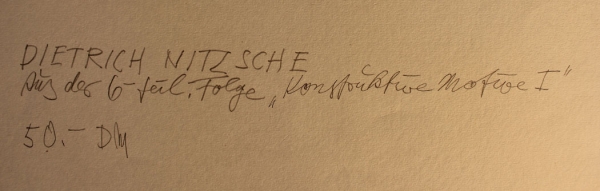 DIETRICH NITZSCHE
Aus der 6-teil. Folge „Konstruktive Motive I"
50.- DM